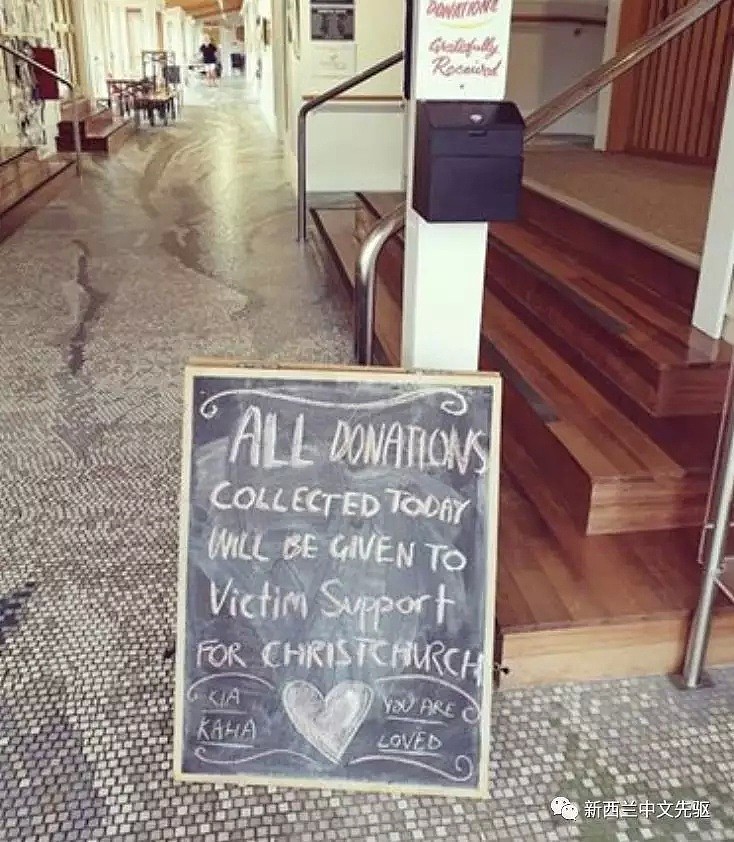 DONATIONS
Gratefully
Received
ALL DONATIONS
COLLECTED TODAY
WILL BE GIVEN TO
Victim Support
FOR CHRISTCHURCH
KIA
KAHA
YOU ARE
LOVED
新西兰中文先驱